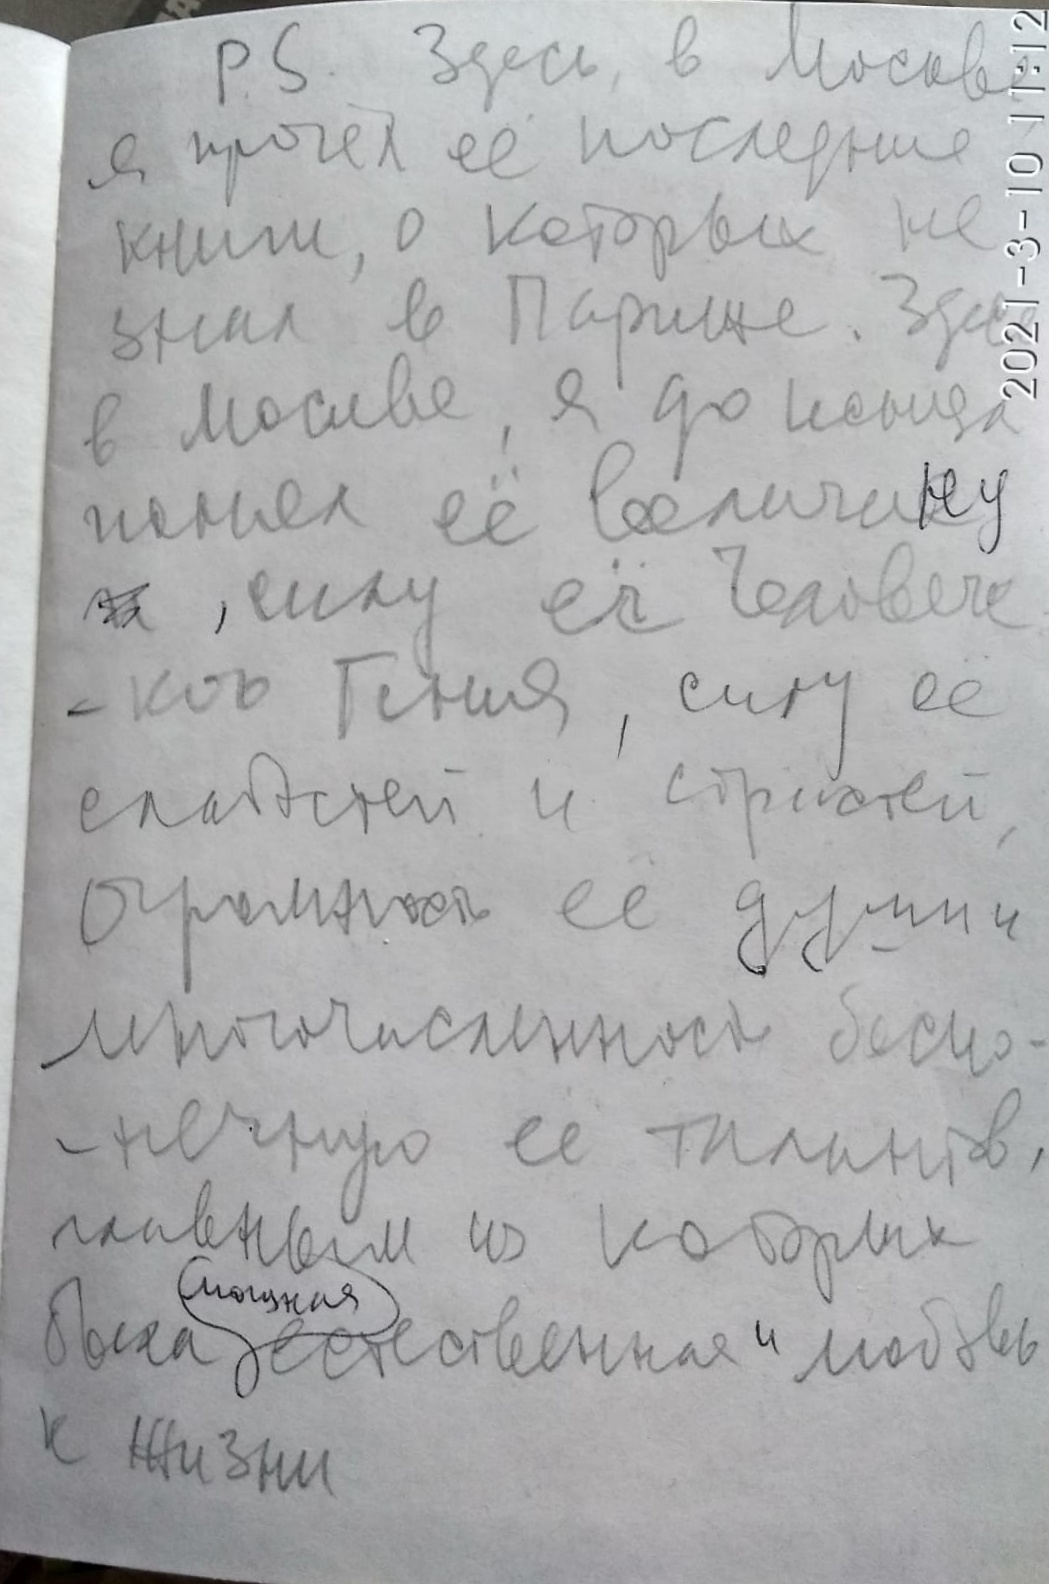 P.S. Здесь, в Москве
я прочёл её последние
книги, о которых не
знал в Париже. Здесь
в Москве, я до конца
понял её величину
, силу её Человече
-ког Гения, силу её
слабостей и страстей,
Огромность её души и
многочисленность беско-
-нечную её талантов,
главным из которых
мощная
была естественная и любовь
к жизни
2021-3-10 11:12